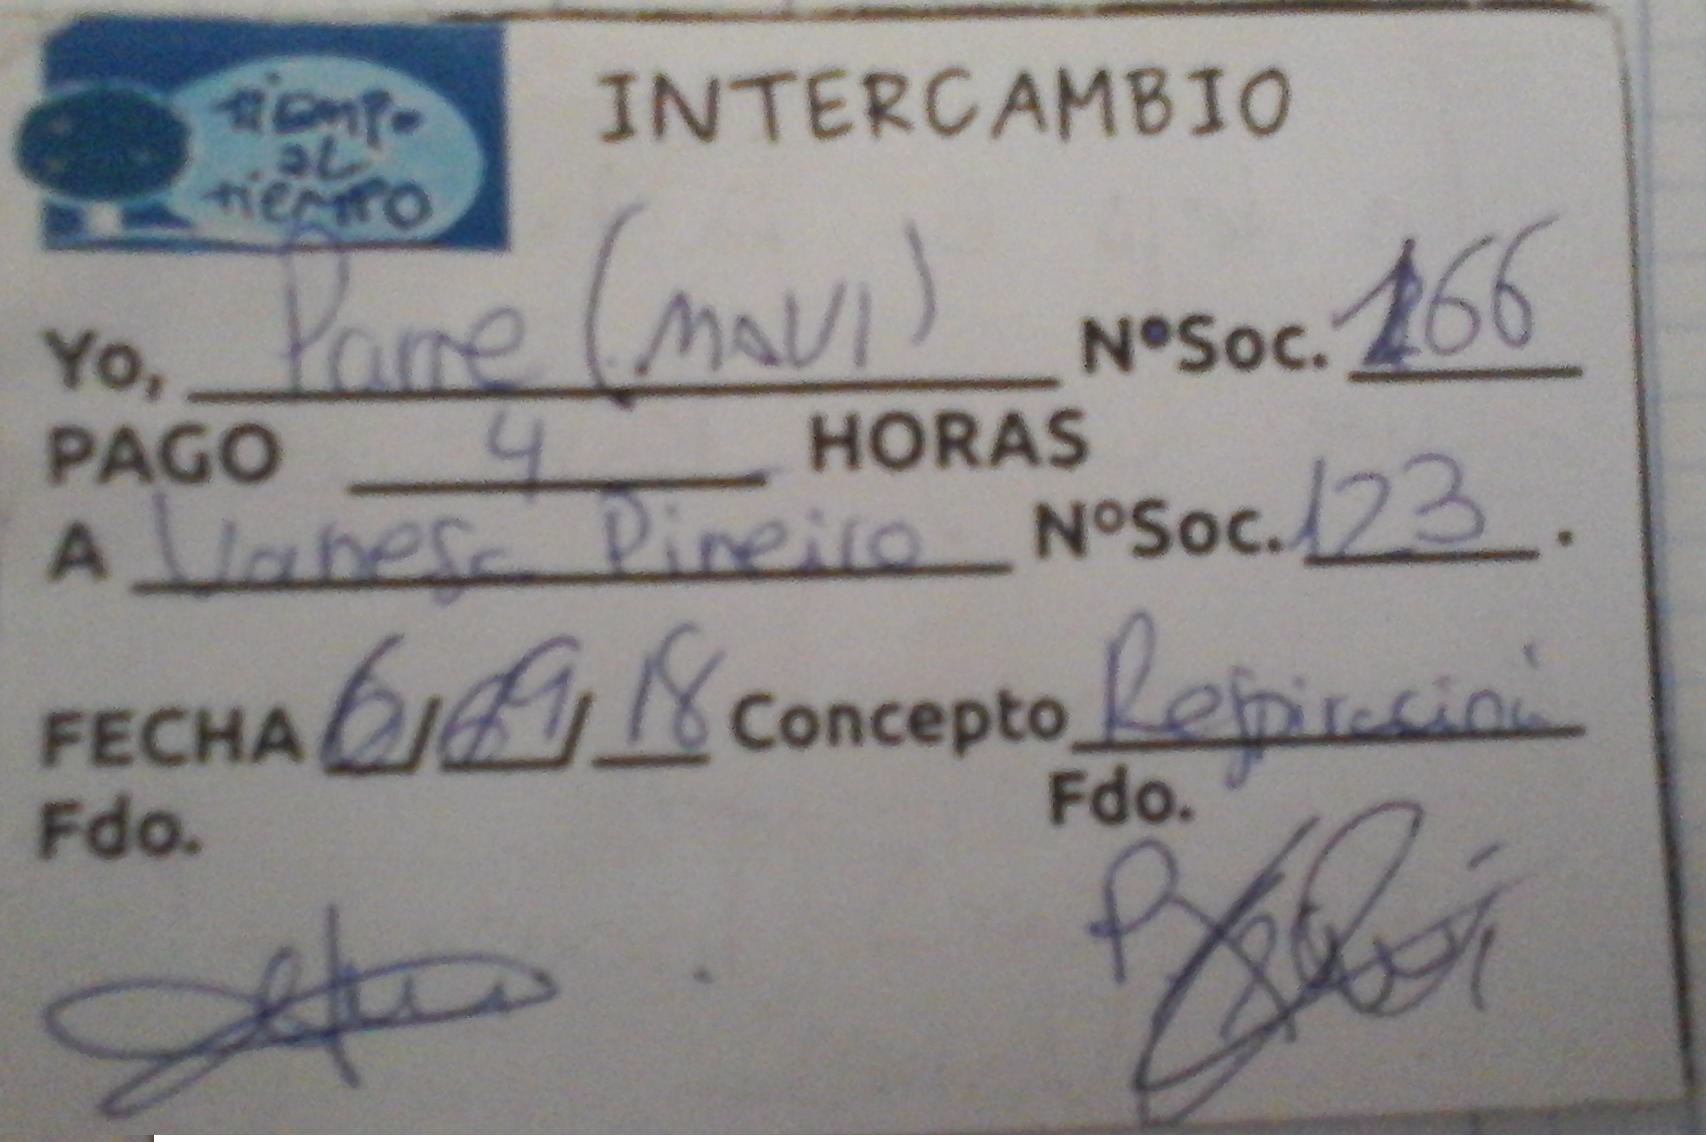 tiempo
al
tiempo
INTERCAMBIO
Yo, Parre (MAVI) NºSoc. 166
PAGO 4 HORAS
A Vanesa Pineiro NºSoc. 123.
FECHA 6/09/18 Concepto
Fdo. Fdo.